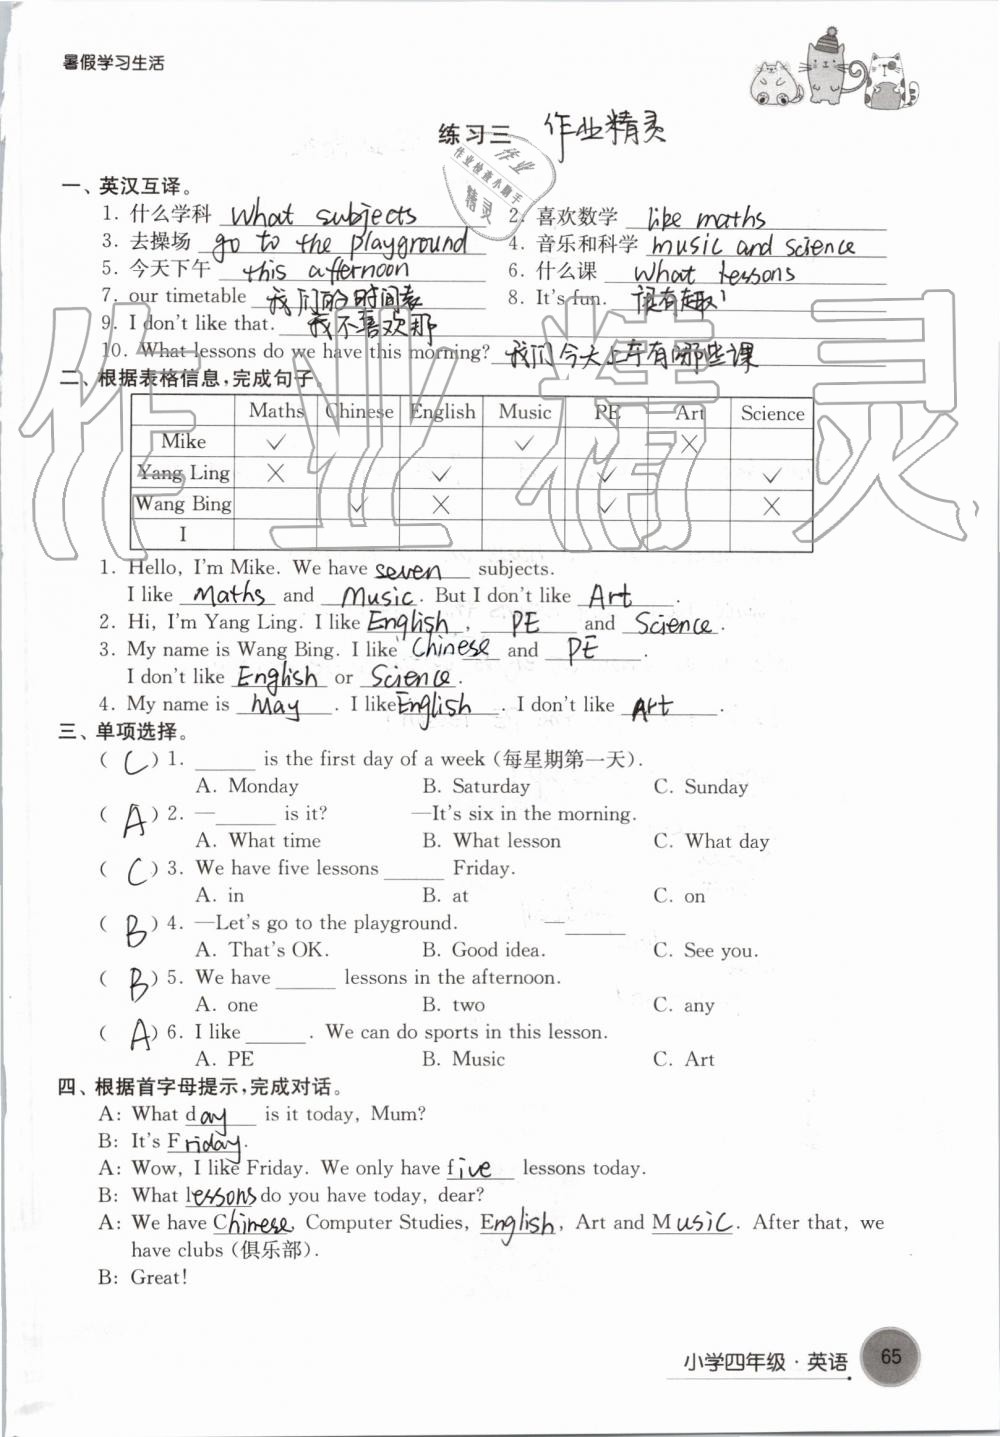 暑假学习生活
练习三 作业精灵
作业
作业检查小助手
精灵
一、英汉互译。
1. 什么学科 what subjects 2. 喜欢数学 like maths
3. 去操场 go to the playground 4. 音乐和科学 music and science
5. 今天下午 this afternoon 6. 什么课 what lessons
7. our timetable 我们的时间表 8. It's fun. 很有趣!
9. I don't like that. 我不喜欢那
10. What lessons do we have this morning? 我们今天上午有哪些课
二、根据表格信息,完成句子。
Maths Chinese English Music PE Art Science
Mike ✓ ✓ ×
Yang Ling × ✓ ✓ ✓
Wang Bing ✓ × ✓ ×
I
1. Hello, I'm Mike. We have seven subjects.
I like Maths and Music. But I don't like Art.
2. Hi, I'm Yang Ling. I like English, PE and Science.
3. My name is Wang Bing. I like Chinese and PE.
I don't like English or Science.
4. My name is May. I like English. I don't like Art.
三、单项选择。
( C ) 1. ______ is the first day of a week (每星期第一天).
A. Monday B. Saturday C. Sunday
( A ) 2. —______ is it? —It's six in the morning.
A. What time B. What lesson C. What day
( C ) 3. We have five lessons ______ Friday.
A. in B. at C. on
( B ) 4. —Let's go to the playground. —______
A. That's OK. B. Good idea. C. See you.
( B ) 5. We have ______ lessons in the afternoon.
A. one B. two C. any
( A ) 6. I like ______. We can do sports in this lesson.
A. PE B. Music C. Art
四、根据首字母提示,完成对话。
A: What day is it today, Mum?
B: It's Friday.
A: Wow, I like Friday. We only have five lessons today.
B: What lessons do you have today, dear?
A: We have Chinese, Computer Studies, English, Art and Music. After that, we
have clubs (俱乐部).
B: Great!
小学四年级·英语 65
作业精灵